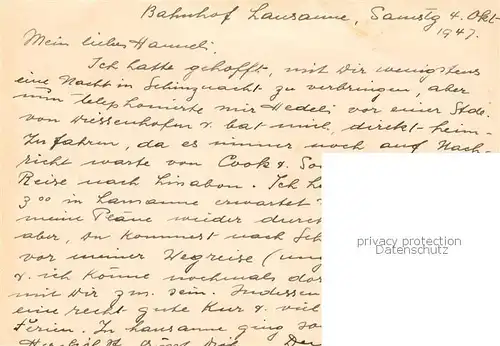 Bahnhof Lausanne, Samstg 4. Okt.
1947.
Mein liebes Hanneli.
Ich hatte gehofft, mit Dir wenigstens
eine Nacht in Schinznacht zu verbringen, aber
nun telephonierte mir Hedeli vor einer Stde.
von Diessenhofen & bat mich, direkt heim-
zufahren, da es immer noch auf Nach-
richt warte von Cook & So
Reise nach Lisabon. Ich h
3°° in Lausanne erwartet
meine Pläne wieder durch
aber, Du kommst nach Sch
vor meiner Wegreise (un
& ich könne nochmals do
mit Dir zus. sein. Indessen
eine recht gute Kur & viel
Ferien. In Lausanne ging so
Herzlichst grüsst Dich De
privacy protection
Datenschutz